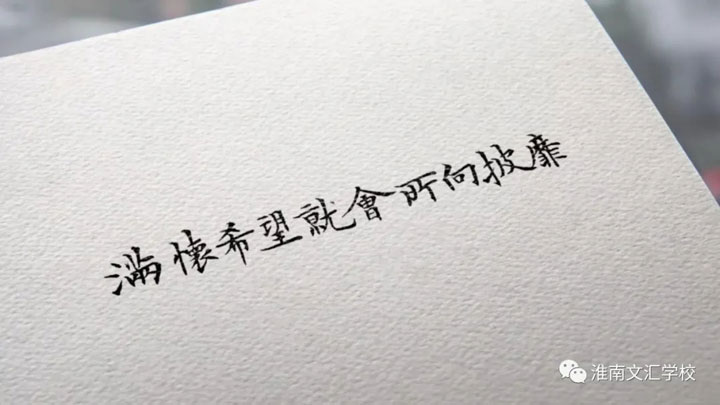 滿懷希望就會所向披靡
淮南文汇学校